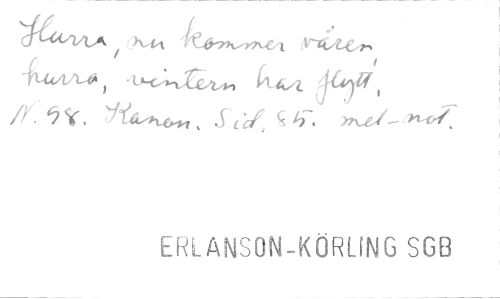 Hurra, nu kommer våren,
hurra, vintern har flytt,
N. 98. Kanon. Sid. 85. mel-not.
ERLANSON-KÖRLING SGB